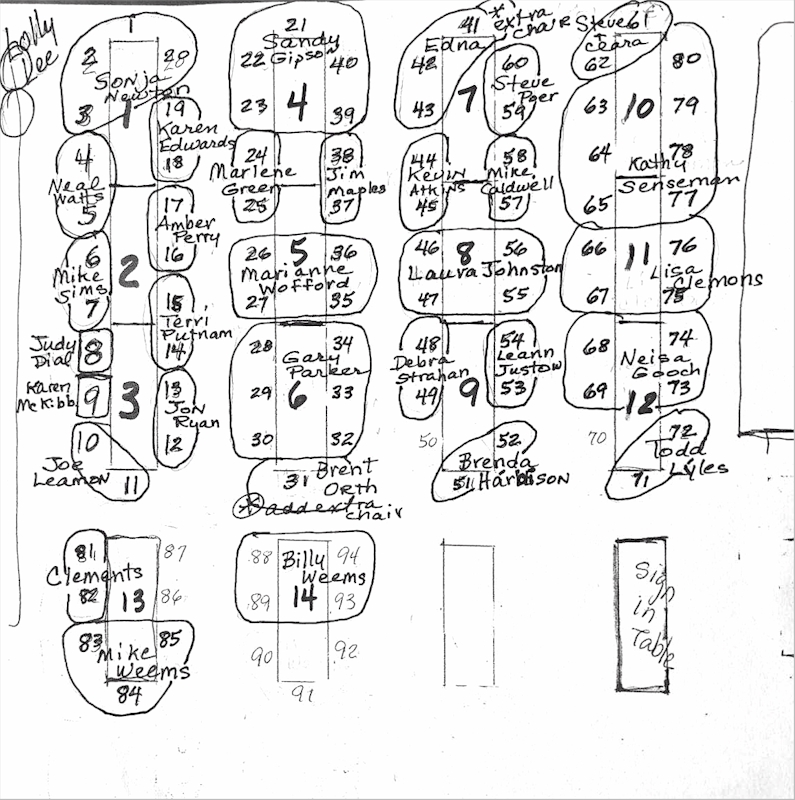 Lolly
Lee
1
2 28
Sonja
Newton
3 1 19
Karen
Edwards
18
4
Neal
Watts
5
17
Amber
Perry
16
6
Mike
Sims
7
2
15
Terri
Putnam
14
Judy
Dial
8
Karen
McKibb
9
3
13
Jon
Ryan
12
10
Joe
Leamon
11
21
Sandy
Gipson
22 40
23 4 39
24 38
Marlene
Green
25
Jim
Maples
37
26 5 36
Marianne
Wofford
27 35
28 34
Gary
Parker
29 6 33
30 32
31 Brent
Orth
* add extra
chair
41 * extra
chair
Edna
42 60
Steve
Poer
43 7 59
44 58
Kevin
Atkins
45
Mike
Caldwell
57
46 8 56
Laura Johnston
47 55
48 54
Debra
Strahan
49
Leann
Justow
53
9
50 52
Brenda
Harbison
51
Steve 61
+ Ceara
62 80
63 10 79
64 78
Kathy
Senseman
65 77
66 11 76
Lisa
Clemons
67 75
68 74
Neisa
Gooch
69 12 73
70 72
Todd
Lyles
71
81 87
Clements
82 13 86
83 85
Mike
Weems
84
88 94
Billy
Weems
89 14 93
90 92
91
Sign
in
Table